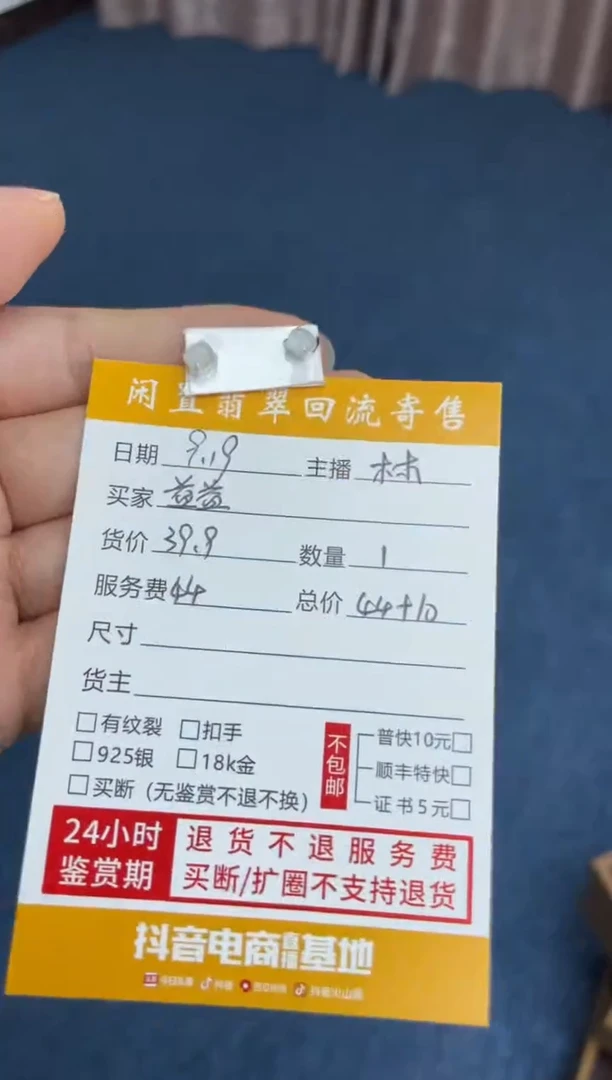 闲置翡翠回流寄售
日期 9.19 主播 林
买家 益益
货价 39.9 数量 1
服务费 44 总价 44+10
尺寸
货主
有纹裂 扣手
925银 18k金
买断（无鉴赏不退不换）
不包邮
普快10元
顺丰特快
证书5元
24小时
鉴赏期
退货不退服务费
买断/扩圈不支持退货
抖音电商直播基地
今日头条 抖音 西瓜视频 抖音火山版